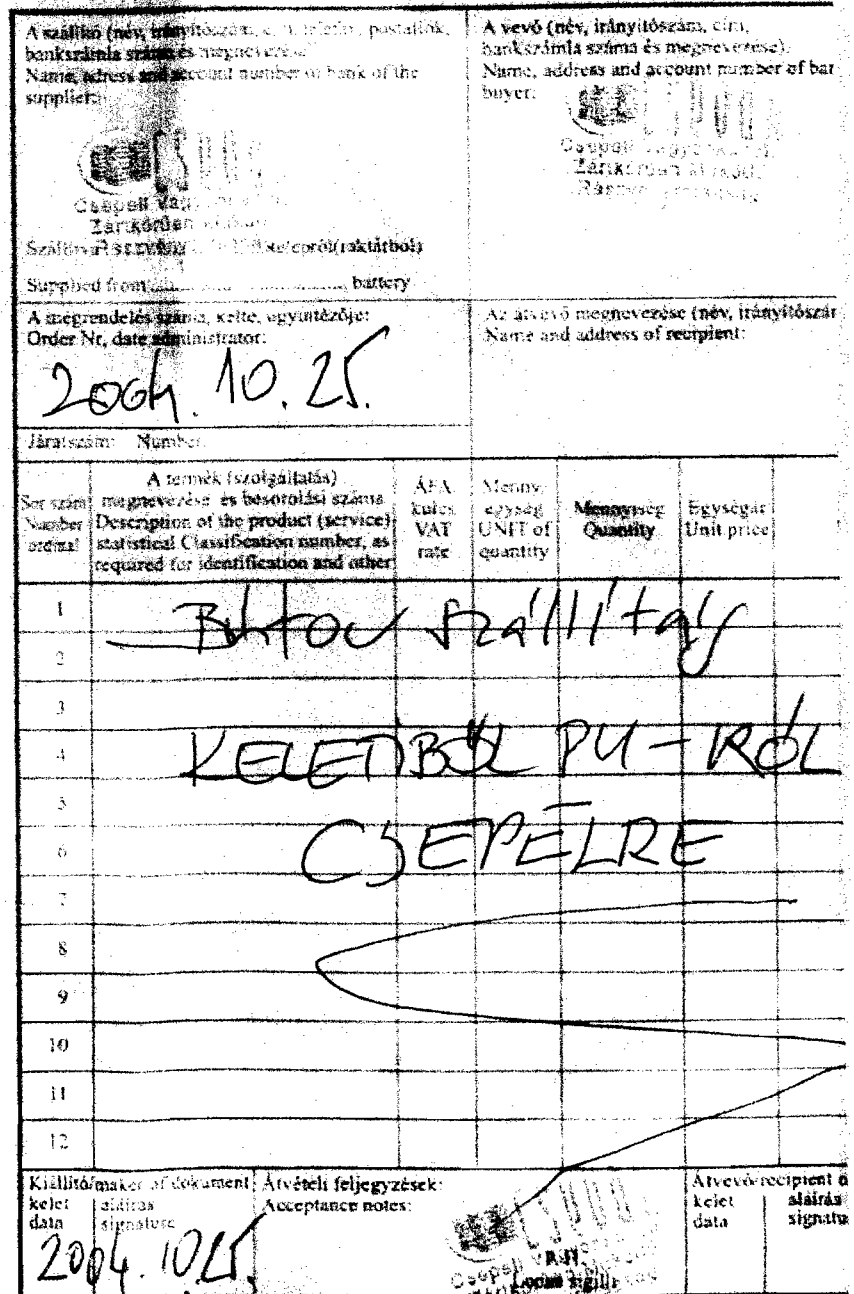 A szállító (név, irányítószám, cím, telefon, postafiók,
bankszámla száma és megnevezése)
Name, adress and account number of bank of the
supplier:
A vevő (név, irányítószám, cím,
bankszámla száma és megnevezése):
Name, address and account number of bar
buyer:
Csepeli
Zártkörűen
Csepeli
Zártkörűen
telepről(raktárból)
Supplied from battery
A megrendelés száma, kelte, ügyintézője:
Order Nr, date administrator:
2004. 10. 25.
Az átvevő megnevezése (név, irányítószár
Name and address of recipient:
Járatszám: Number:
Sor szám
Number
ordinal
A termék (szolgáltatás)
megnevezése és besorolási száma
Description of the product (service)
statistical Classification number, as
required for identification and other
ÁFA
kulcs
VAT
rate
Menny.
egység
UNIT of
quantity
Mennyiség
Quantity
Egységár
Unit price
1
Bútor szállítás
2
3
4
KELETIBŐL PU-RÓL
5
6
CSEPELRE
7
8
9
10
11
12
Kiállító/maker of dokument
kelet
data
aláírás
signature
2004.10.25.
Átvételi feljegyzések:
Acceptance notes:
P.H.
Locus sigilli
Csepeli
Átvevő/recipient o
kelet
data
aláírás
signatu